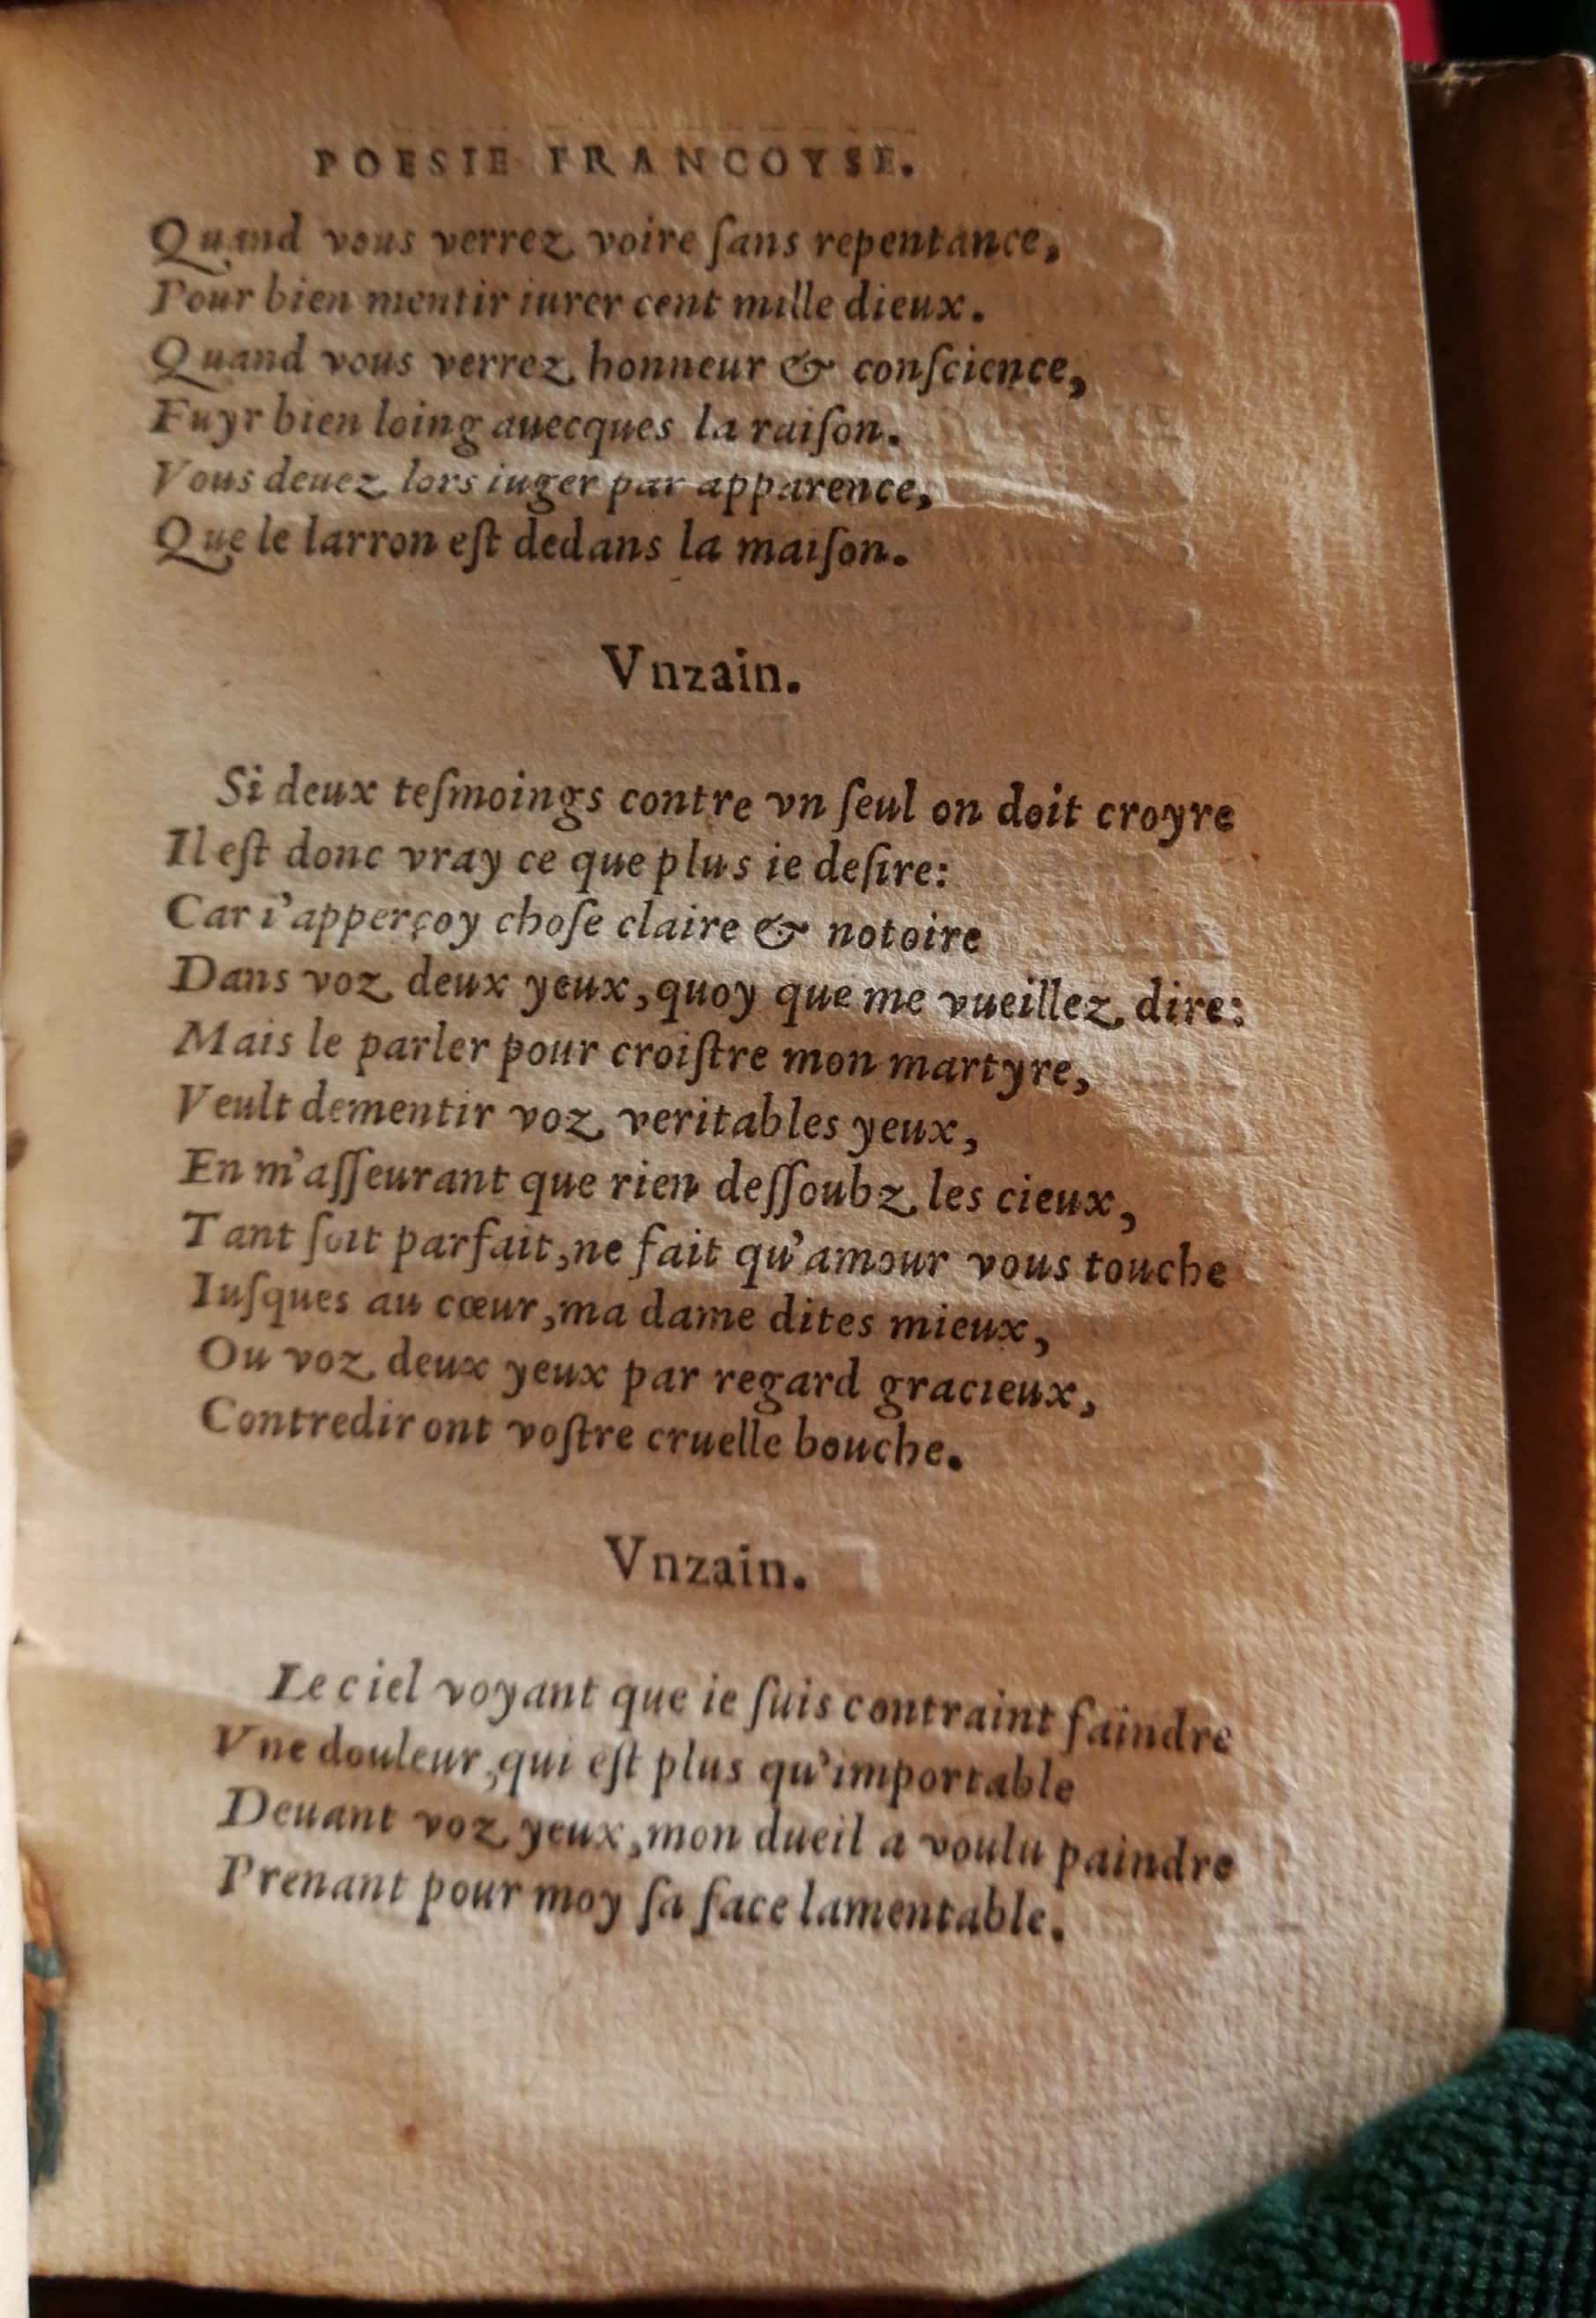 POESIE FRANCOYSE.
Quand vous verrez voire ſans repentance,
Pour bien mentir iurer cent mille dieux.
Quand vous verrez honneur & conſcience,
Fuyr bien loing auecques la raiſon.
Vous deuez lors iuger par apparence,
Que le larron eſt dedans la maiſon.
Vnzain.
Si deux teſmoings contre vn ſeul on doit croyre
Il eſt donc vray ce que plus ie deſire:
Car i'apperçoy choſe claire & notoire
Dans voz deux yeux, quoy que me vueillez dire:
Mais le parler pour croiſtre mon martyre,
Veult dementir voz veritables yeux,
En m'aſſeurant que rien deſſoubz les cieux,
Tant ſoit parfait, ne fait qu'amour vous touche
Iuſques au cœur, ma dame dites mieux,
Ou voz deux yeux par regard gracieux,
Contrediront voſtre cruelle bouche.
Vnzain.
Le ciel voyant que ie ſuis contraint faindre
Vne douleur, qui eſt plus qu'importable
Deuant voz yeux, mon dueil a voulu paindre
Prenant pour moy ſa face lamentable.